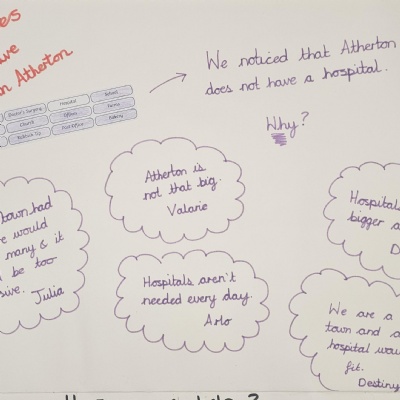 es
ve
n Atherton
Doctor's Surgery Hospital School
Church Offices Farms
Rubbish Tip Post Office Factory
We noticed that Atherton
does not have a hospital.
Why?
Atherton is
not that big.
Valarie
town had
e would
many & it
be too
sive. Julia
Hospitals aren't
needed every day.
Arlo
Hospitals
bigger a
D
We are a
town and a
hospital wou
fit.
Destiny